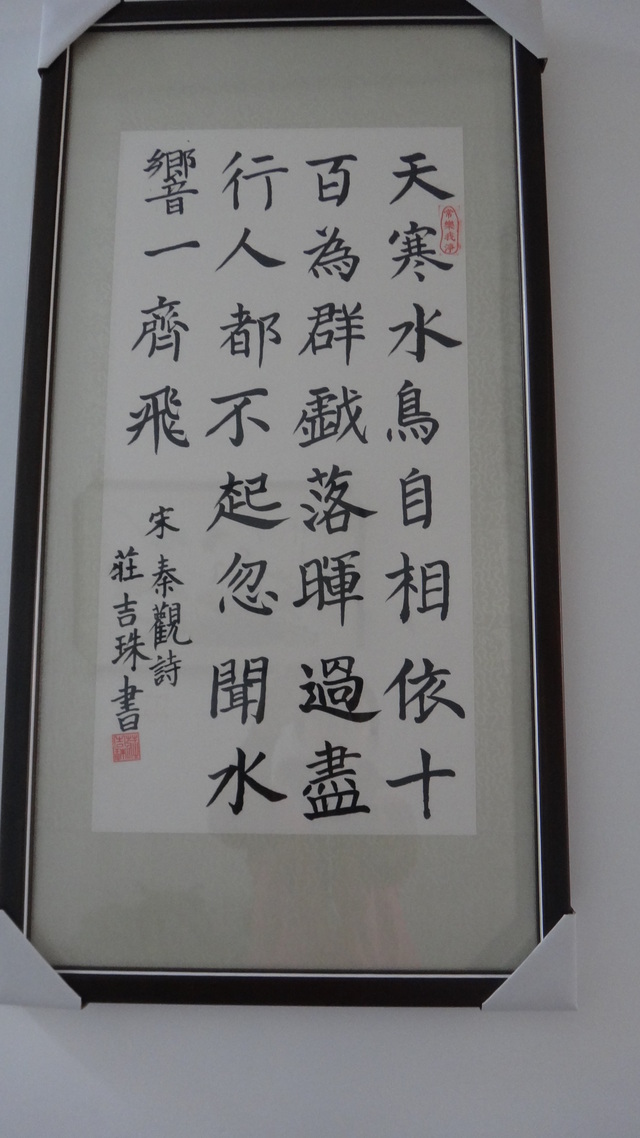 天寒水鳥自相依十
百為群戱落暉過盡
行人都不起忽聞水
響一齊飛
宋秦觀詩
莊吉珠書
常樂我淨